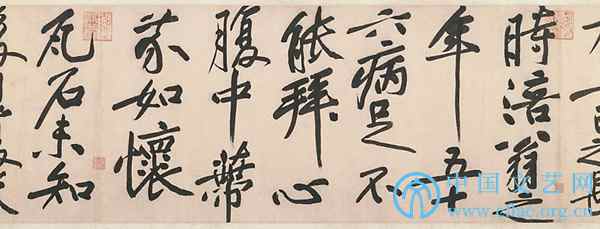 時涪翁之
年五十
六病足不
能拜心
腹中蔕
芥如懷
瓦石未知
中国文艺网
www.cflac.org.cn